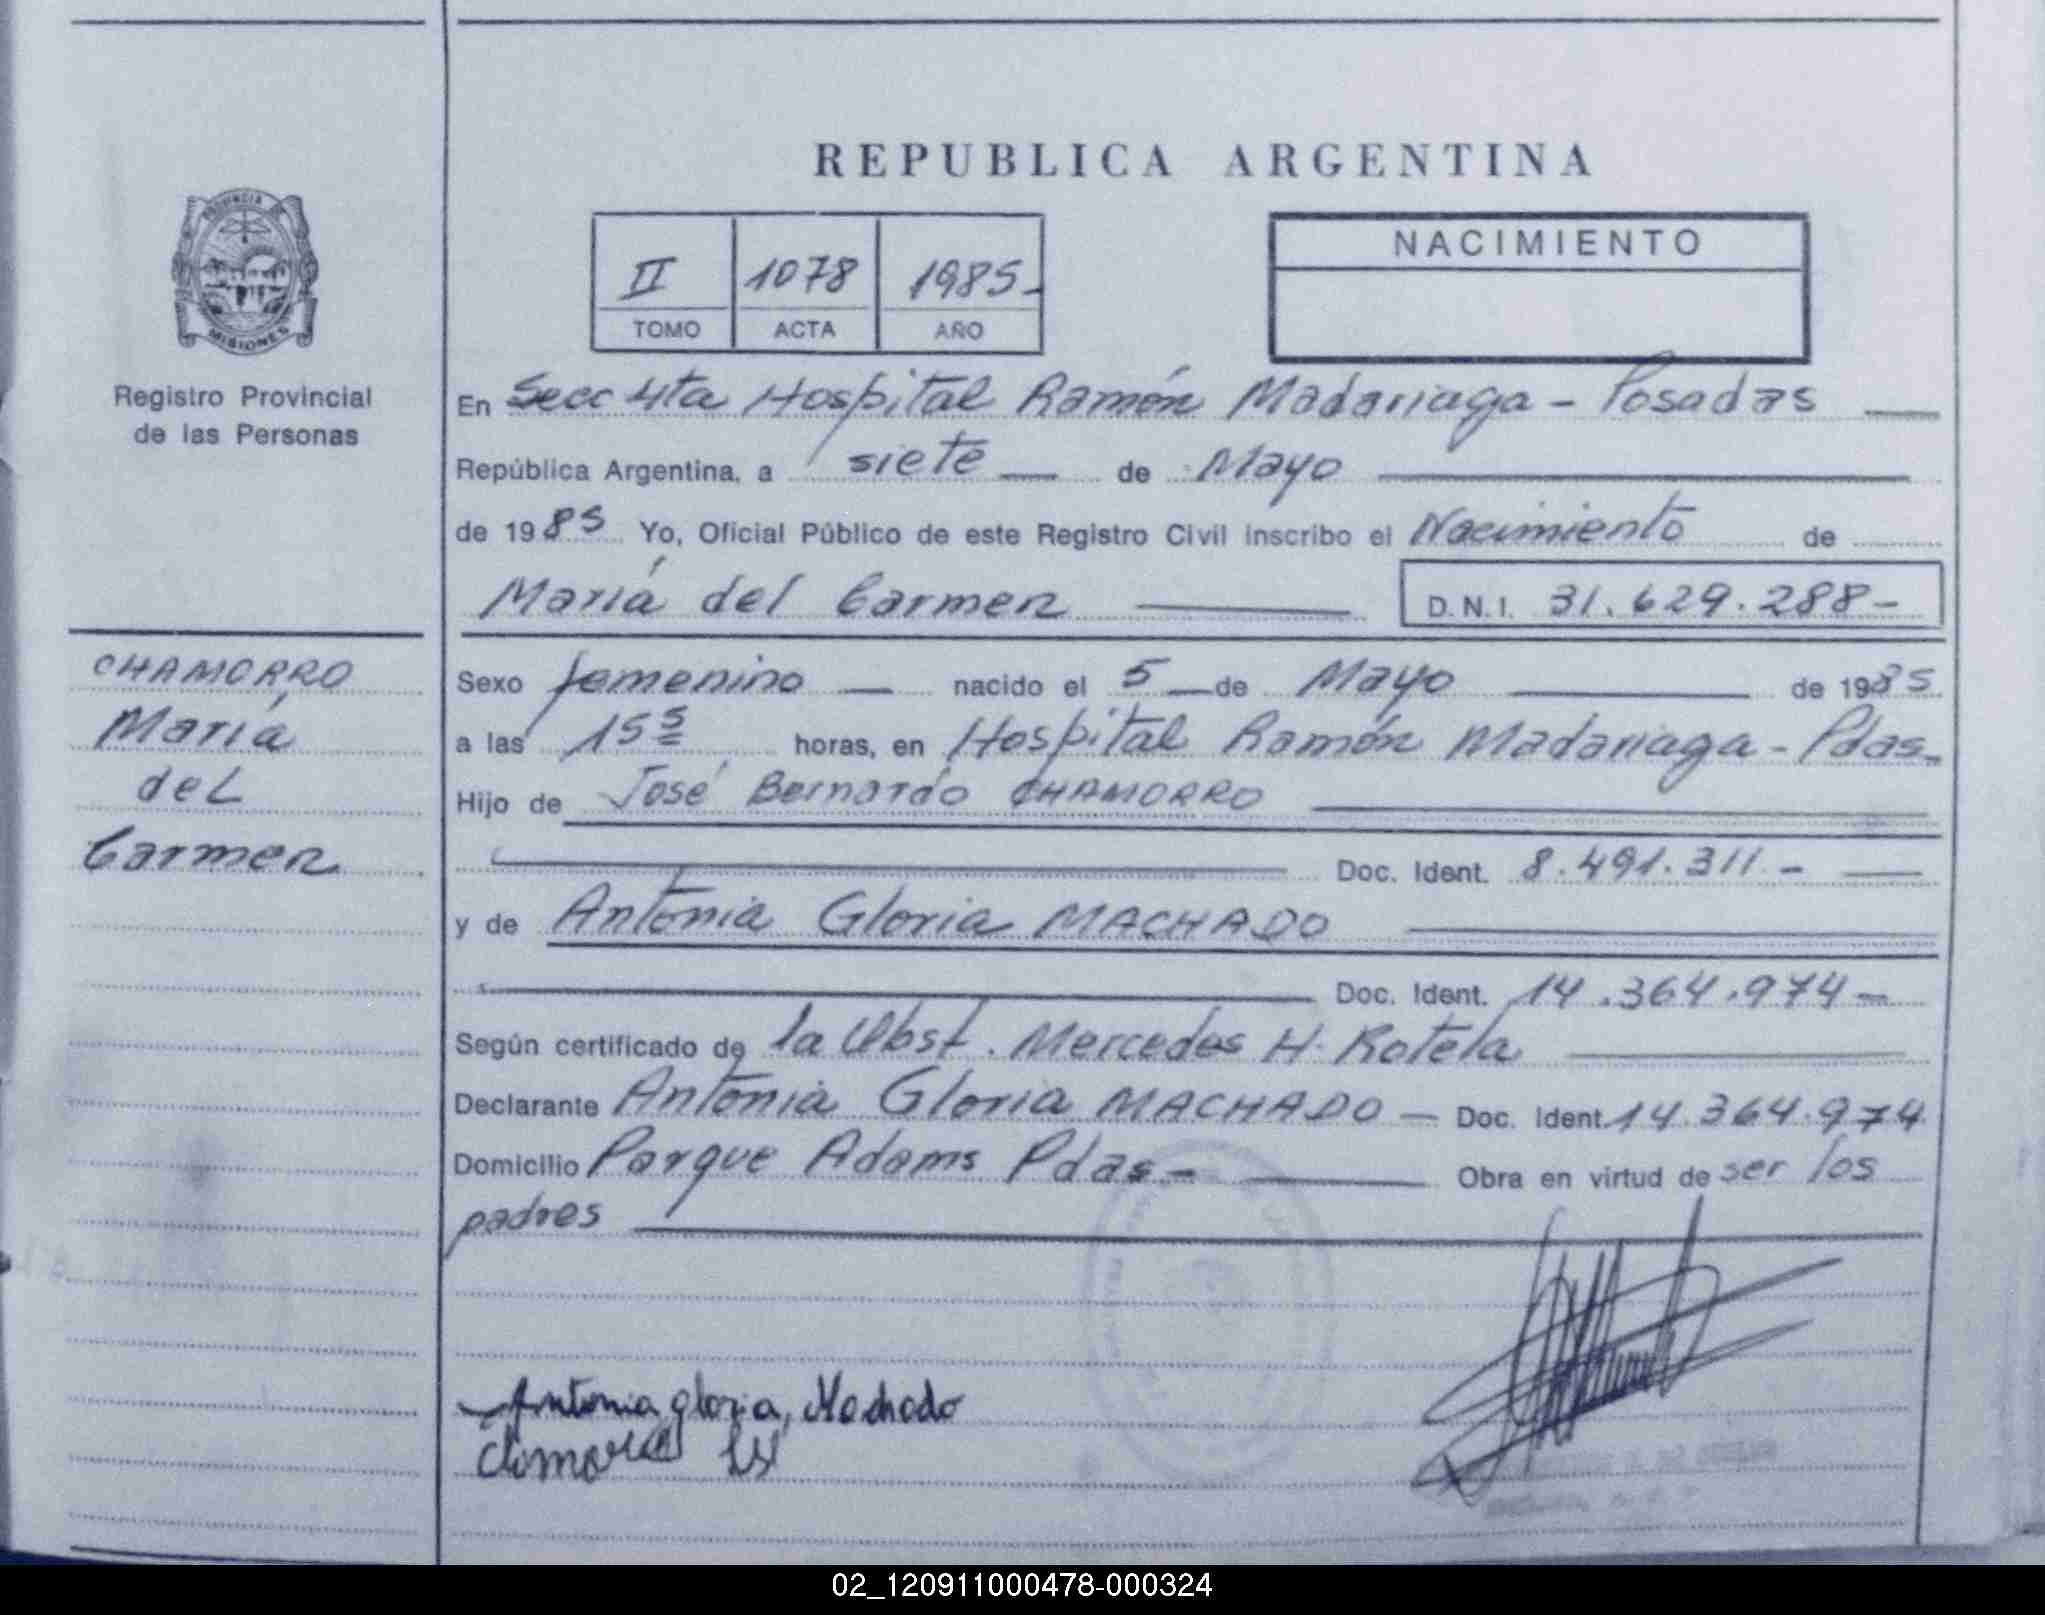 REPUBLICA ARGENTINA
PROVINCIA DE
MISIONES
Registro Provincial
de las Personas
II 1078 1985-
TOMO ACTA AÑO
NACIMIENTO
En Secc 4ta Hospital Ramón Madariaga - Posadas
República Argentina, a siete de Mayo
de 1985 Yo, Oficial Público de este Registro Civil inscribo el Nacimiento de
María del Carmen D.N.I. 31.629.288-
CHAMORRO
María
del
Carmen
Sexo femenino nacido el 5 de Mayo de 1985
a las 15 5 horas, en Hospital Ramón Madariaga - Pdas-
Hijo de José Bernardo CHAMORRO
Doc. Ident. 8.491.311.-
y de Antonia Gloria MACHADO
Doc. Ident. 14.364.974-
Según certificado de la Obst. Mercedes H. Rotela
Declarante Antonia Gloria MACHADO - Doc. Ident. 14.364.974
Domicilio Parque Adams Pdas.- Obra en virtud de ser los
padres
Antonia gloria, Machado
02_120911000478-000324